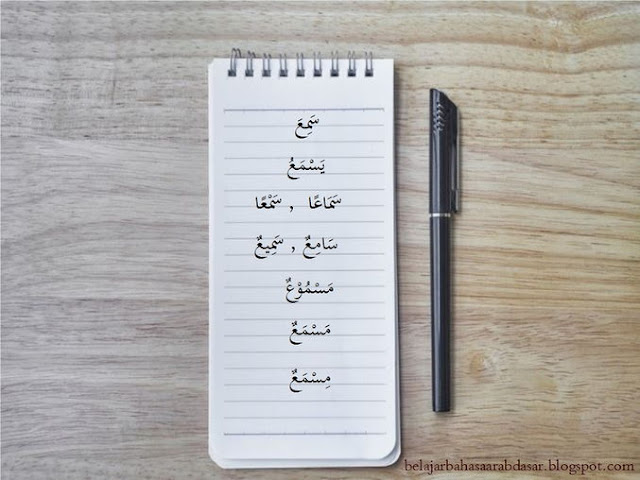 سَمِعَ
يَسْمَعُ
سَمَاعًا , سَمْعًا
سَامِعٌ , سَمِيعٌ
مَسْمُوْعٌ
مَسْمَعٌ
مِسْمَعٌ
belajarbahasaarabdasar.blogspot.com